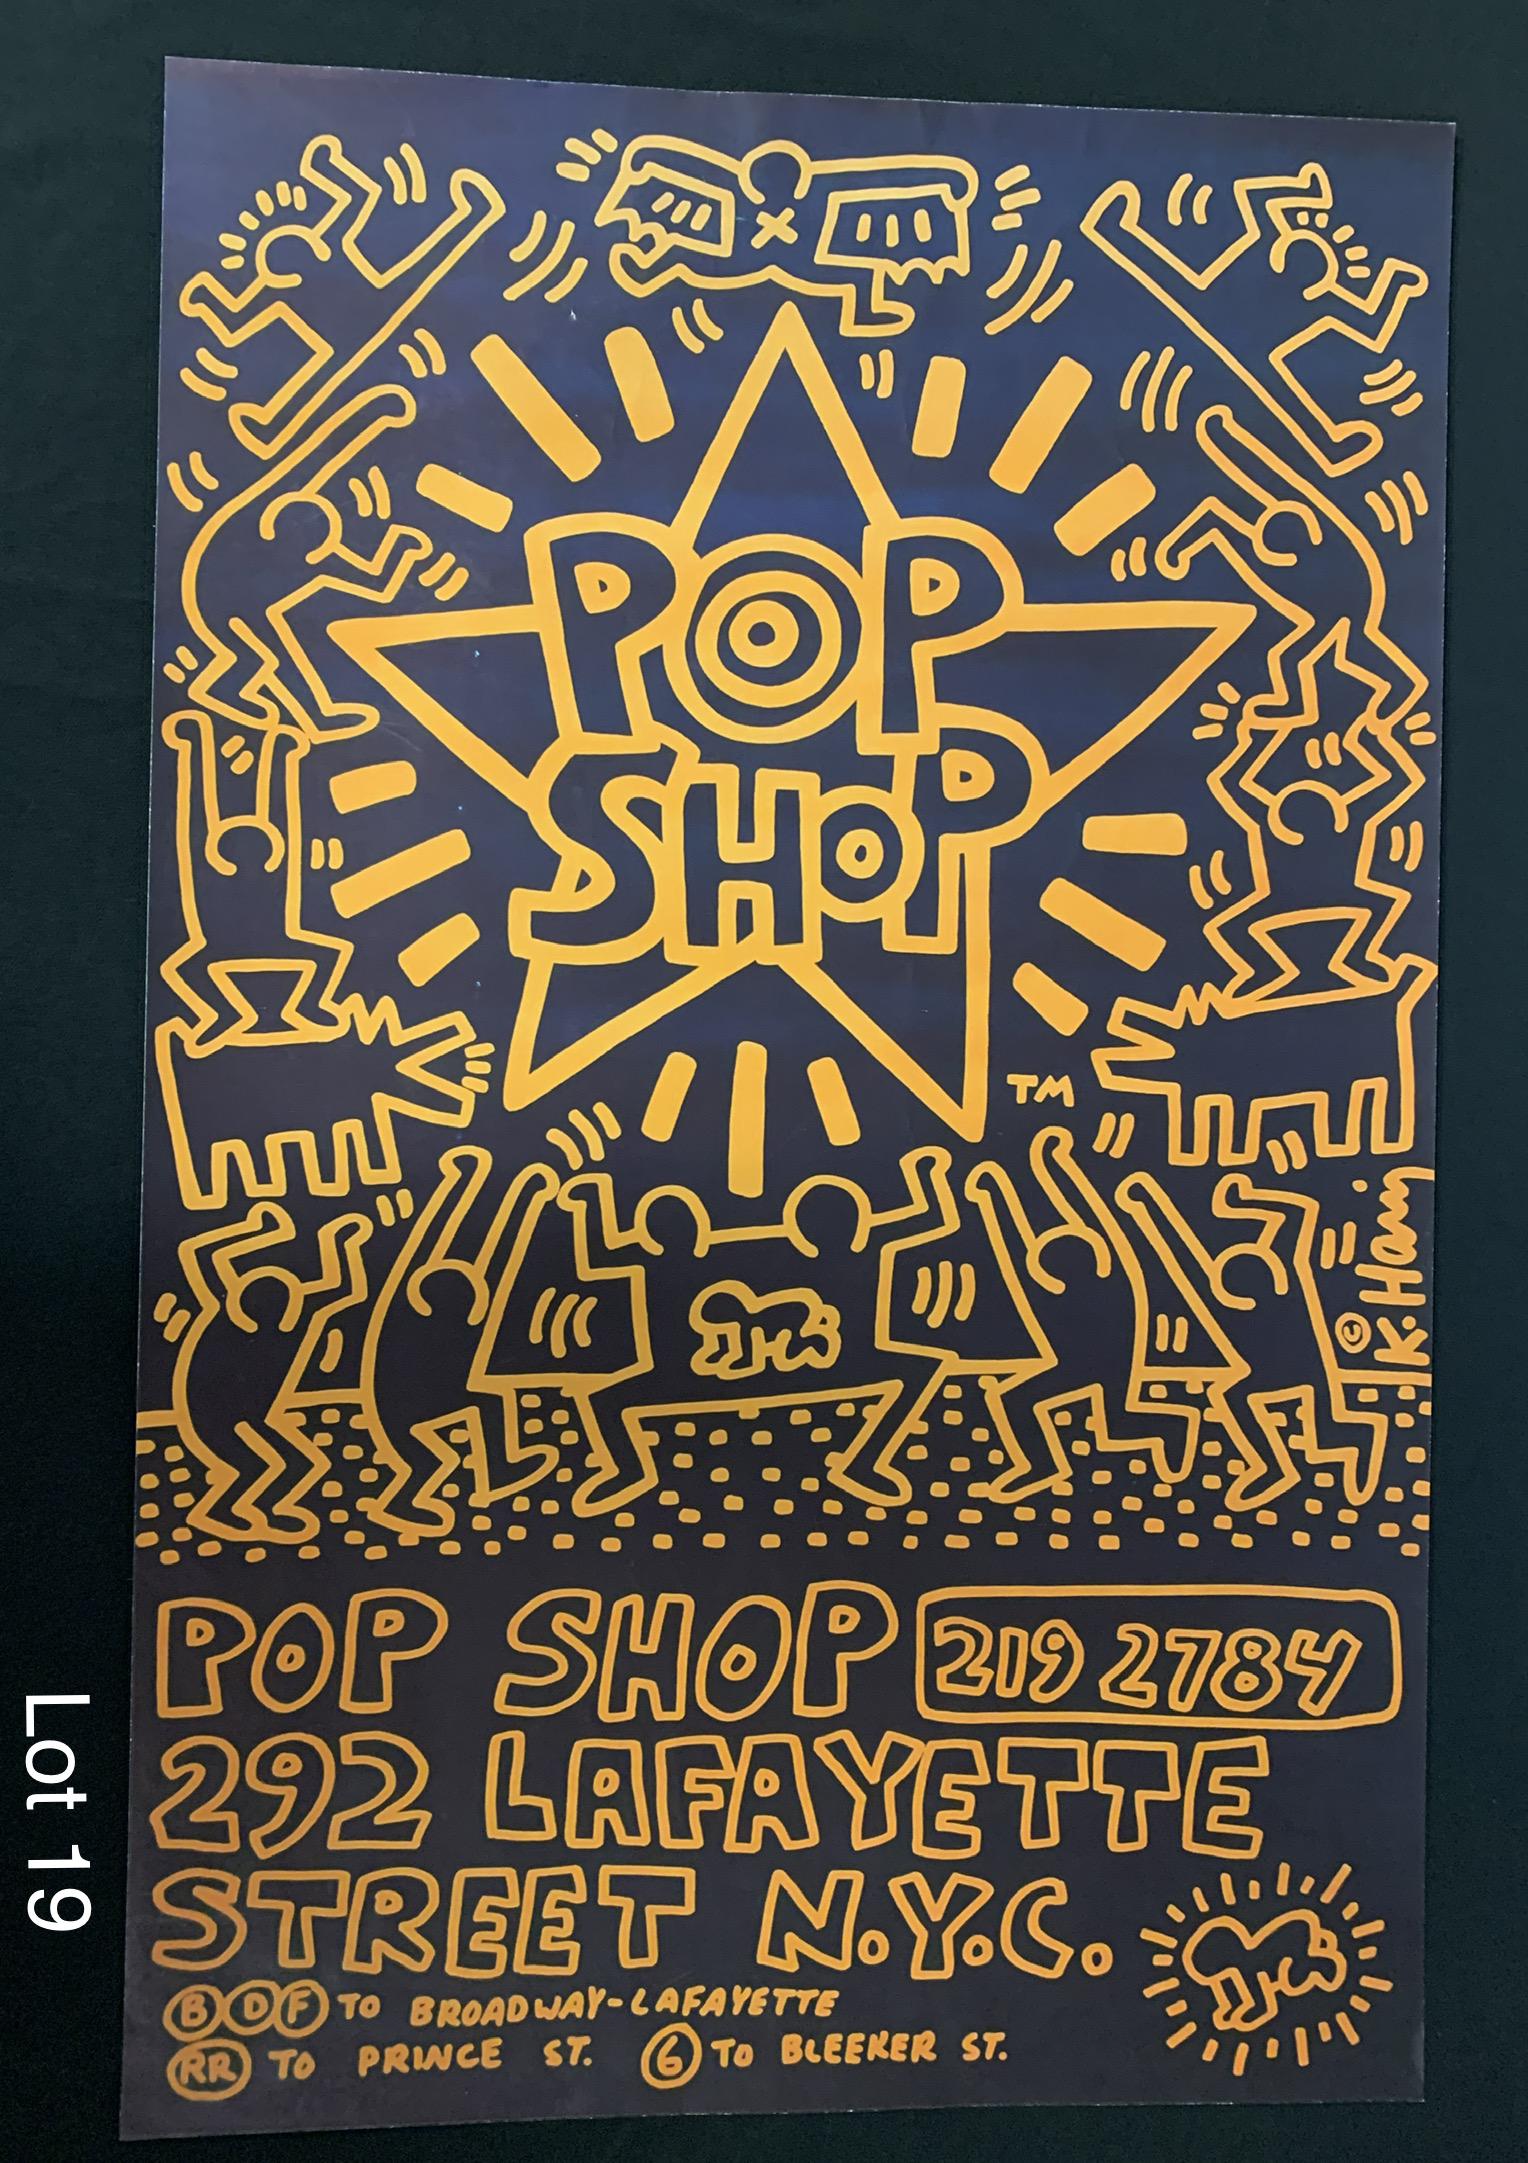 POP
SHOP
TM
© K. Haring
POP SHOP 219 2784
292 LAFAYETTE
STREET N.Y.C.
B D F TO BROADWAY-LAFAYETTE
RR TO PRINCE ST. 6 TO BLEEKER ST.
Lot 19